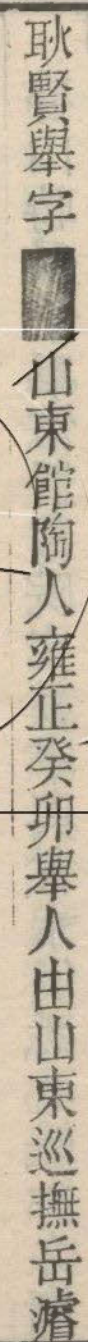 耿賢舉字山東館陶人雍正癸卯舉人由山東巡撫岳濬